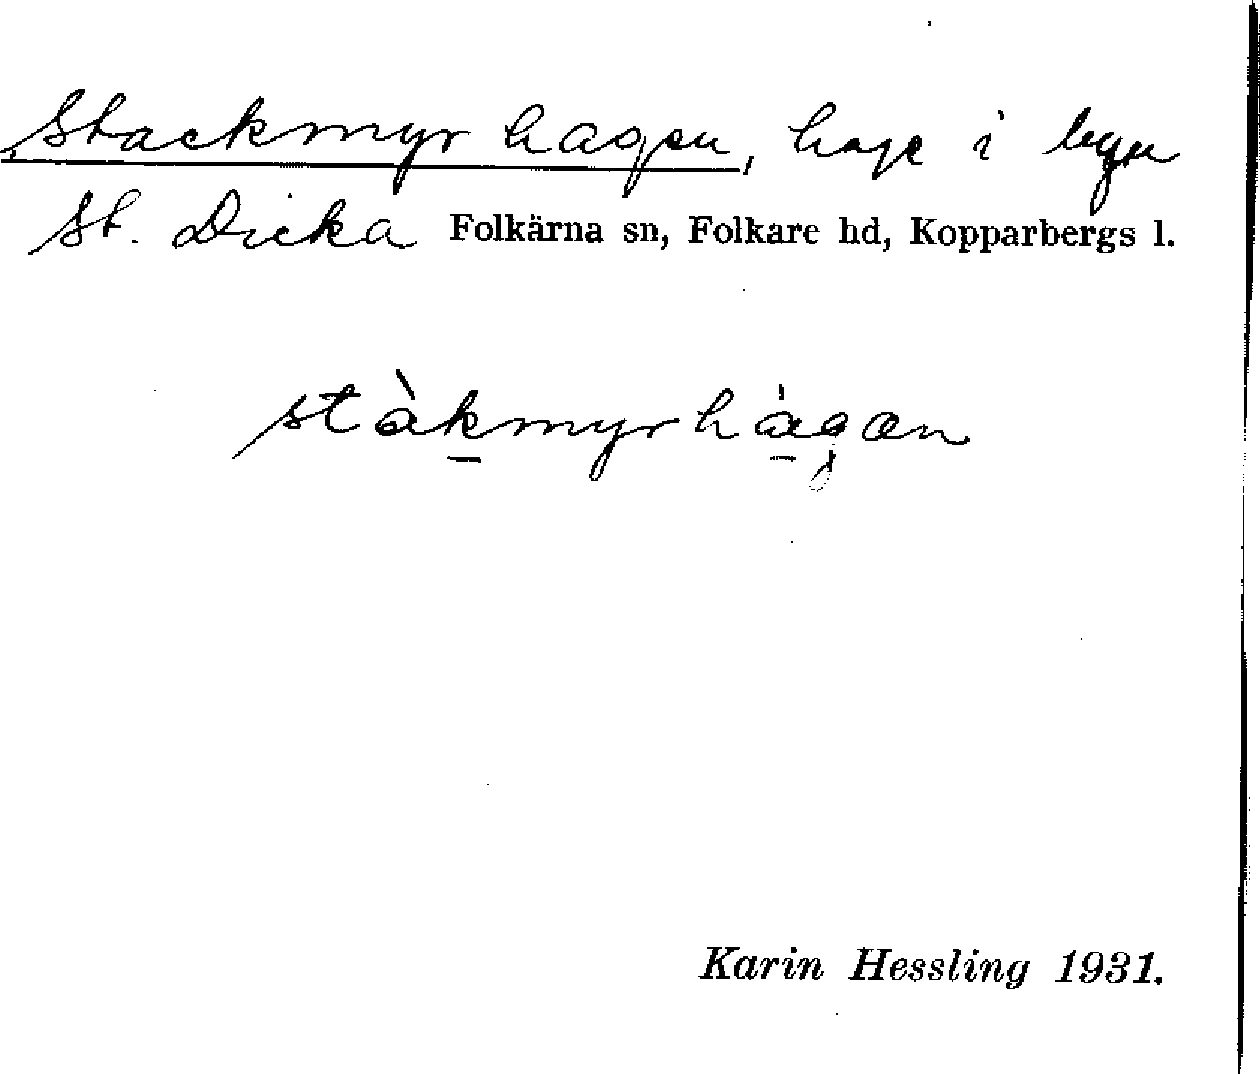 Stackmyrhagen, hage i byn
St. Dicka Folkärna sn, Folkare hd, Kopparbergs l.
stàkmyrhágan
Karin Hessling 1931.